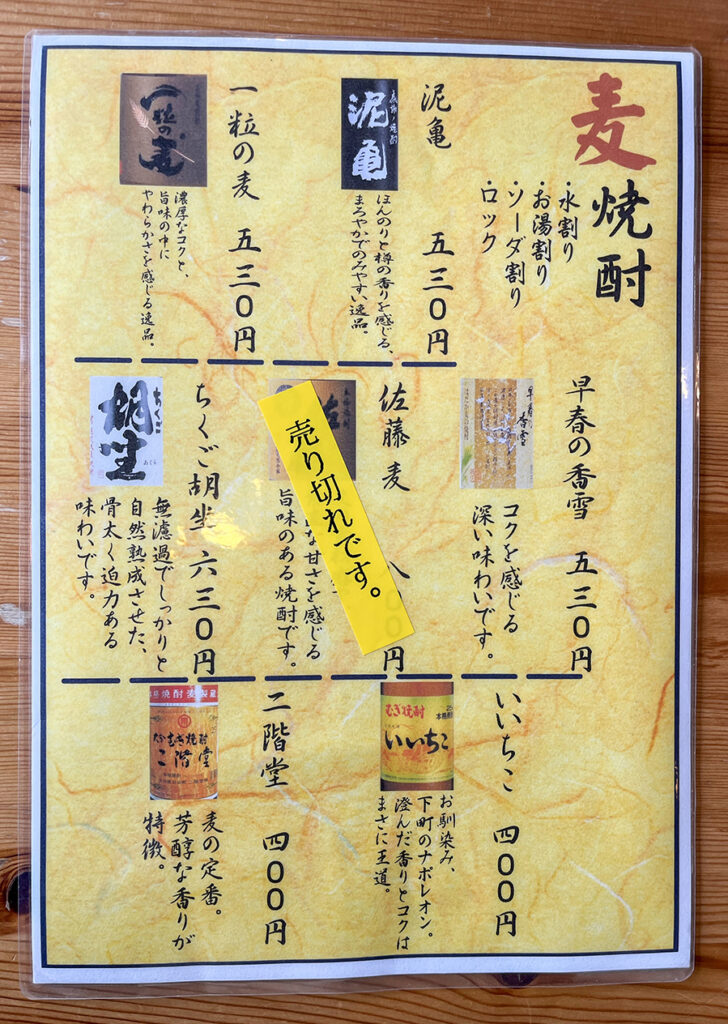 麦焼酎
・水割り
・お湯割り
・ソーダ割り
・ロック
泥亀 五三〇円
泥亀
ほんのりと樽の香りを感じる、
まろやかでのみやすい逸品。
一粒の麦 五三〇円
一粒の麦
濃厚なコクと、
旨味の中に
やわらかさを感じる逸品。
早春の香雪 五三〇円
早春の香雪
コクを感じる
深い味わいです。
佐藤 麦 〇〇円
な甘さを感じる
旨味のある焼酎です。
売り切れです。
ちくご胡坐 六三〇円
ちくご
胡坐
あぐら
無濾過でしっかりと
自然熟成させた、
骨太く迫力ある
味わいです。
いいちこ 四〇〇円
むぎ焼酎
いいちこ
お馴染み、
下町のナポレオン。
澄んだ香りとコクは
まさに王道。
二階堂 四〇〇円
大分むぎ焼酎
二階堂
麦の定番。
芳醇な香りが
特徴。